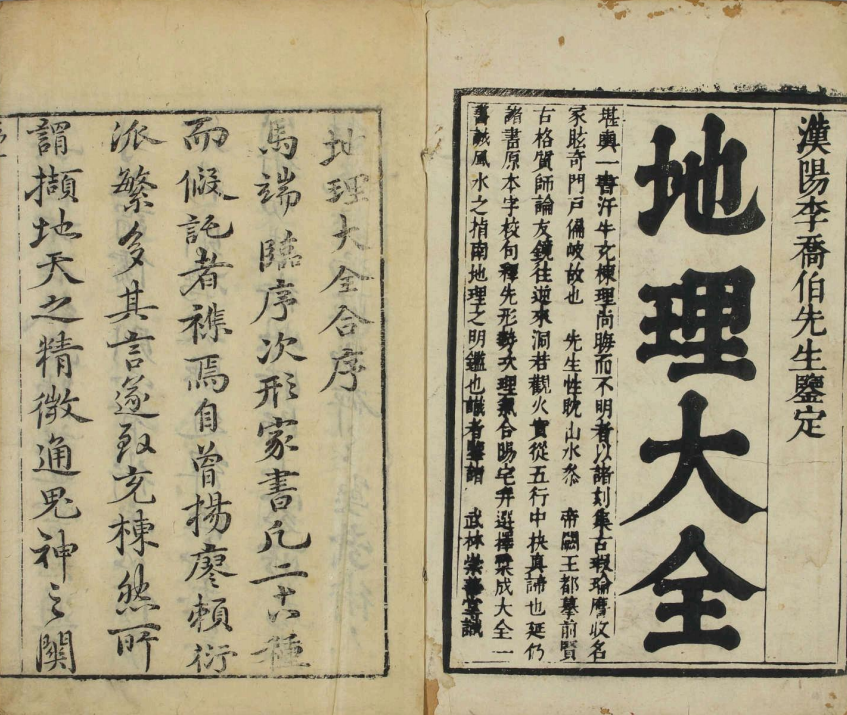 漢陽李喬伯先生鑒定
地理大全
堪輿一書汗牛充棟理尚晦而不明者以諸刻集古瑕瑜席收名
家眩奇門戶偏岐故也 先生性耽山水叅 帝闕王都摹前賢
古格質師論友鏡往遡來洞若觀火實從五行中抉真諦也延仍
諸書原本字校句釋先形勢次理氣合陽宅弁選擇彙成大全一
書誠風水之指南地理之明鑑也識者鑒諸 武林崇善堂識
地理大全合序
馬端臨序次形家書凡二十八種
而假託者襍焉自曾揚廖賴衍
派繁多其言遂致充棟然所
謂擷地天之精微通鬼神之關